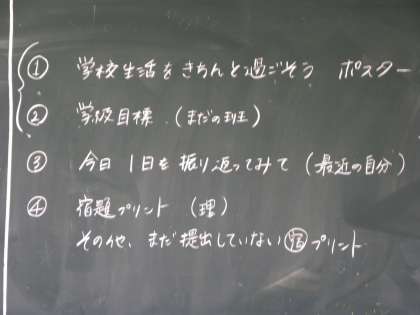 ① 学校生活をきちんと過ごそう ポスター
② 学級目標 (まだの班)
③ 今日1日を振り返ってみて (最近の自分)
④ 宿題プリント (理)
その他、まだ提出していない㊢プリント